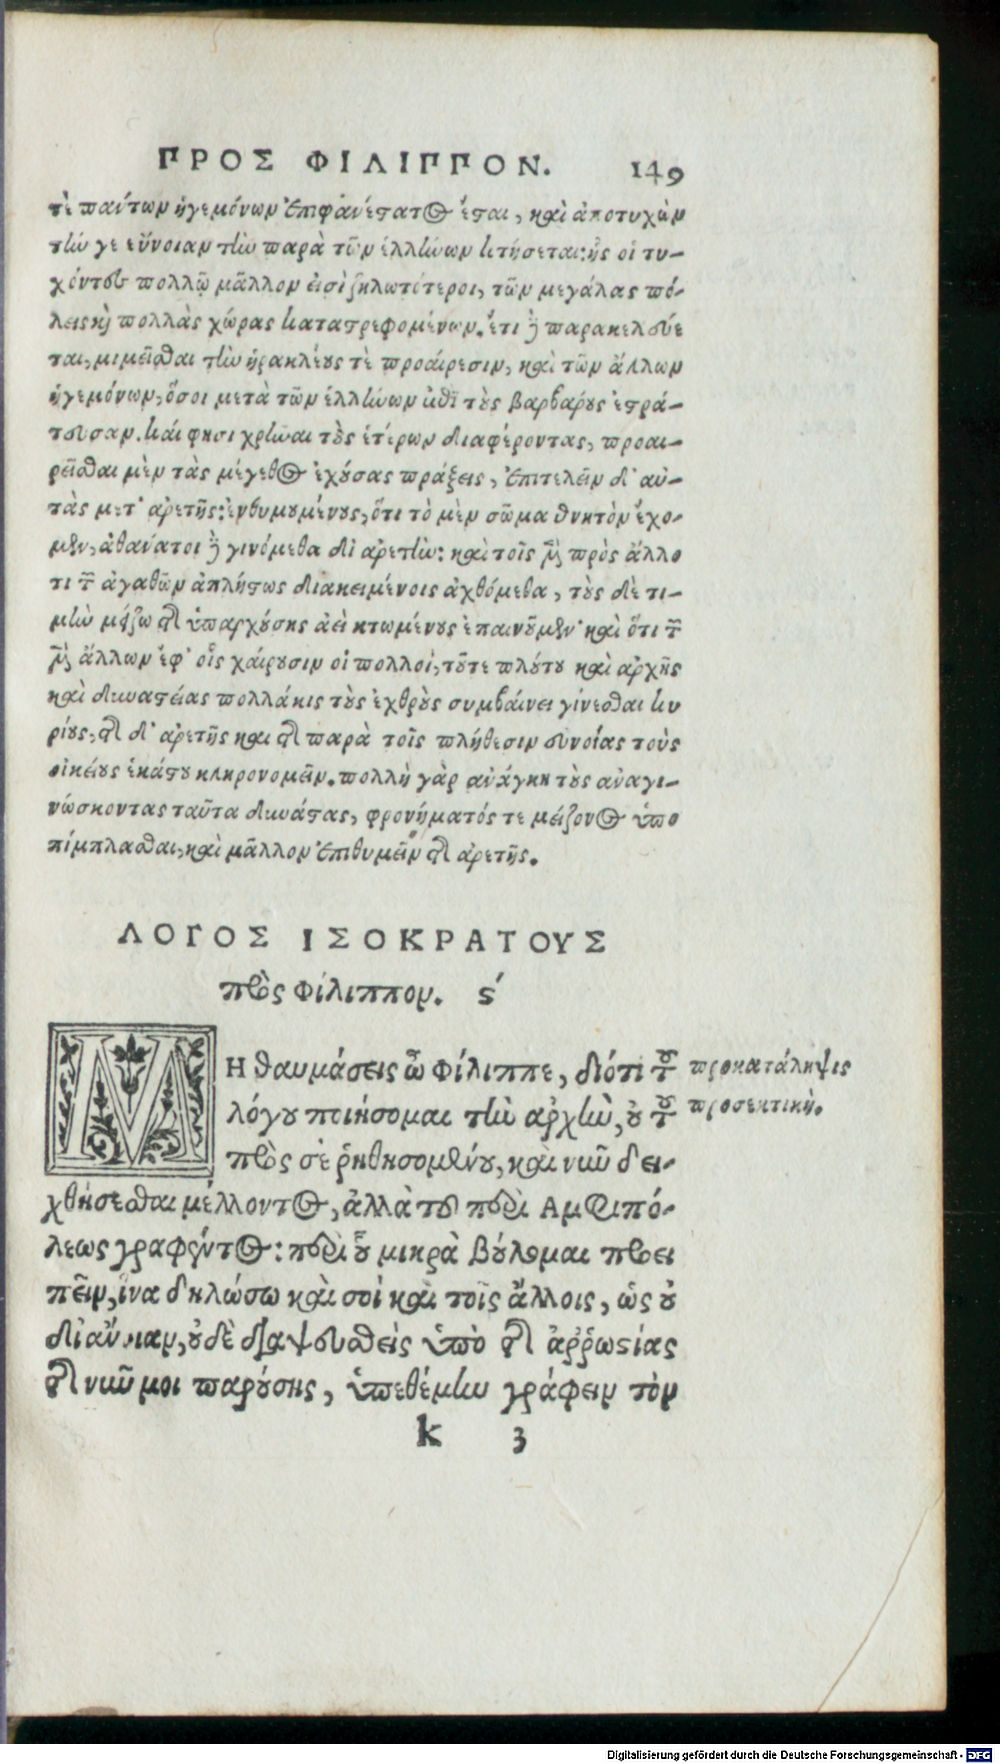 ΠΡΟΣ ΦΙΛΙΠΠΟΝ. 149
τὲ πάντων ἡγεμόνων ἐπιφανέστατος ἔσται, καὶ ἀποτυχὼν
τήν γε εὔνοιαν τὴν παρὰ τῶν ἑλλήνων κτήσεται: ἧς οἱ τυ-
χόντες πολλῷ μᾶλλον εἰσὶ ζηλωτότεροι, τῶν μεγάλας πό-
λεις καὶ πολλὰς χώρας καταστρεφομένων. ἔτι δὲ παρακελεύε
ται, μιμεῖσθαι τὴν ἡρακλέους τὲ προαίρεσιν, καὶ τῶν ἄλλων
ἡγεμόνων, ὅσοι μετὰ τῶν ἑλλήνων ἐπὶ τοὺς βαρβάρους ἐστρά-
τευσαν. καί φησι χρῆναι τοὺς ἑτέρων διαφέροντας, προαι-
ρεῖσθαι μὲν τὰς μέγεθος ἐχούσας πράξεις, ἐπιτελεῖν δ' αὐ-
τὰς μετ' ἀρετῆς: ἐνθυμουμένους, ὅτι τὸ μὲν σῶμα θνητὸν ἔχο-
μεν, ἀθάνατοι δὲ γινόμεθα δι' ἀρετήν: καὶ τοῖς μὲν πρὸς ἄλλο
τι τῶν ἀγαθῶν ἀπλήστως διακειμένοις ἀχθόμεθα, τοὺς δὲ τι-
μὴν μείζω τῆς ὑπαρχούσης ἀεὶ κτωμένους ἐπαινοῦμεν· καὶ ὅτι τῶν
μὲν ἄλλων ἐφ' οἷς χαίρουσιν οἱ πολλοί, τοῦτε πλούτου καὶ ἀρχῆς
καὶ δυναστείας πολλάκις τοὺς ἐχθροὺς συμβαίνει γίνεσθαι κυ
ρίους, τῆς δ' ἀρετῆς καὶ τῆς παρὰ τοῖς πλήθεσιν εὐνοίας τοὺς
οἰκείους ἑκάστου κληρονομεῖν. πολλὴ γὰρ ἀνάγκη τοὺς ἀναγι-
νώσκοντας ταῦτα δυνάστας, φρονήματός τε μείζονος ὑπο
πίμπλασθαι, καὶ μᾶλλον ἐπιθυμεῖν τῆς ἀρετῆς.
ΛΟΓΟΣ ΙΣΟΚΡΑΤΟΥΣ
πρὸς Φίλιππον. ϛ´
ΜΗ θαυμάσεις ὦ Φίλιππε, διότι τοῦ
λόγου ποιήσομαι τὴν ἀρχὴν, οὐ τοῦ
πρὸς σὲ ῥηθησομένου, καὶ νῦν δει-
χθήσεσθαι μέλλοντος, ἀλλὰ τοῦ περὶ Αμφιπό-
λεως γραφέντος: περὶ οὗ μικρὰ βούλομαι προει
πεῖν, ἵνα δηλώσω καὶ σοὶ καὶ τοῖς ἄλλοις, ὡς οὐ
δι' ἄνοιαν, οὐδὲ διαψευσθεὶς ὑπὸ τῆς ἀῤῥωστίας
τῆς νῦν μοι παρούσης, ὑπεθέμην γράφειν τὸν
προκατάληψις
προσεκτική.
k 3
Digitalisierung gefördert durch die Deutsche Forschungsgemeinschaft - DFG